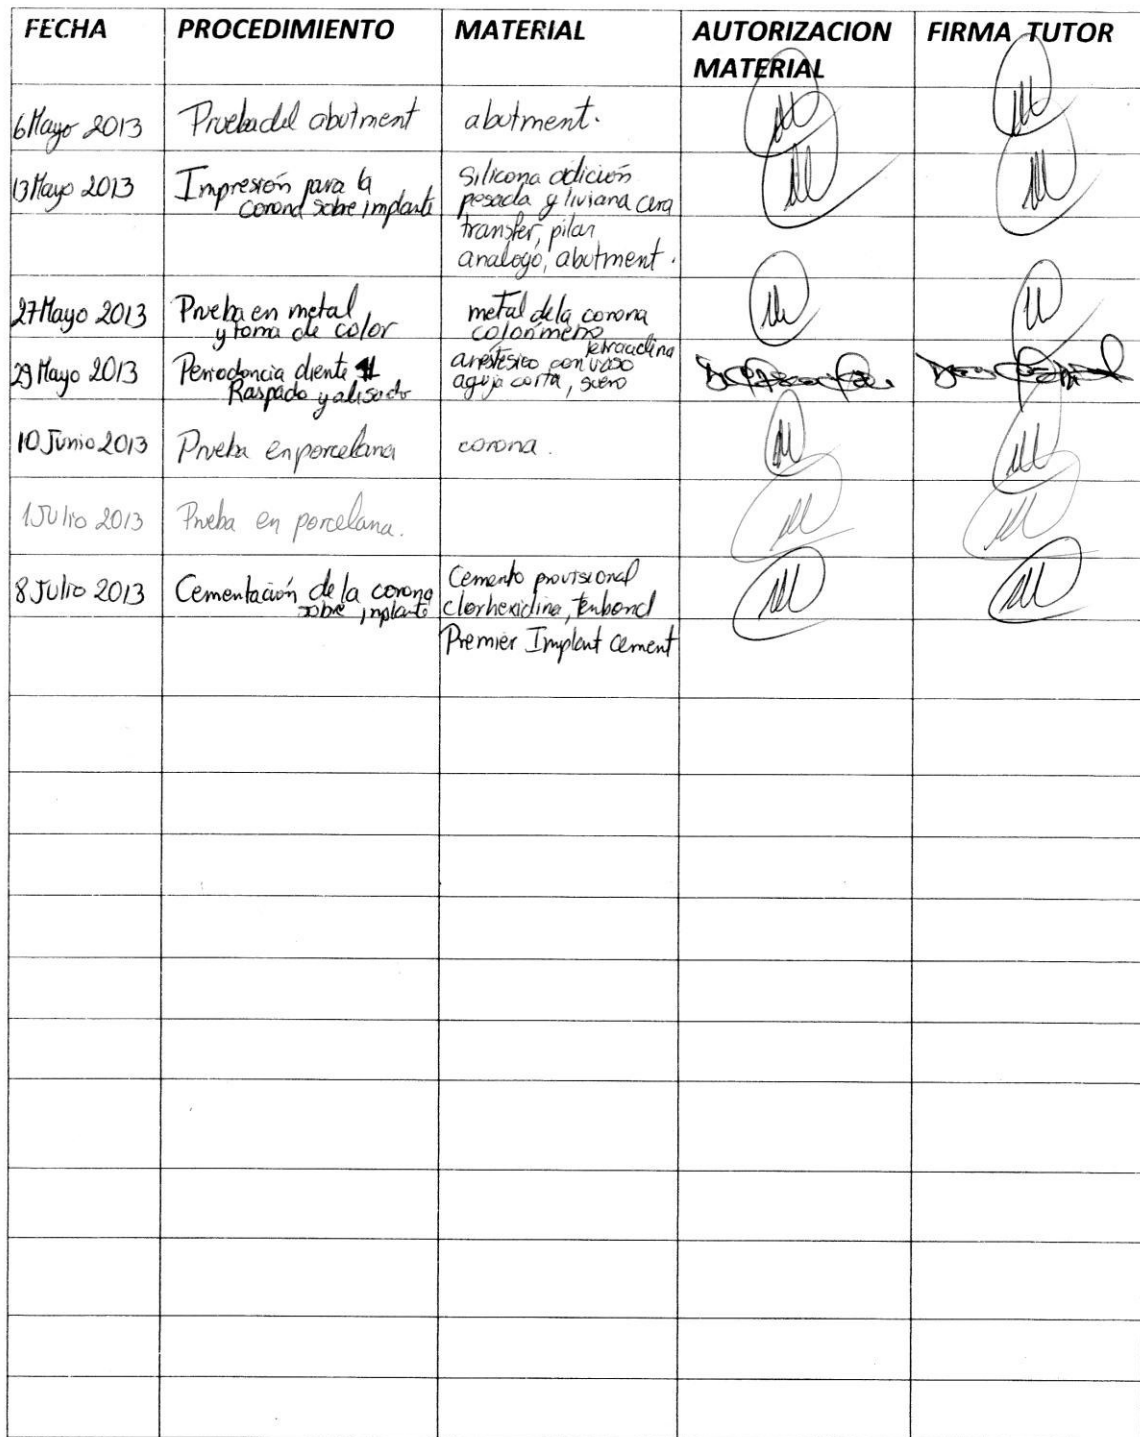 FECHA PROCEDIMIENTO MATERIAL AUTORIZACION MATERIAL FIRMA TUTOR
6 Mayo 2013 Prueba del abutment abutment.
13 Mayo 2013 Impresión para la corona sobre implante
Silicona adición
pesada y liviana cera
transfer, pilar
analogo, abutment.
27 Mayo 2013 Prueba en metal y toma de color
metal de la corona
colorimetro
29 Mayo 2013 Periodoncia diente
Raspado y alisado
tetraciclina
anestesico con vaso
aguja corta, suero
10 Junio 2013 Prueba en porcelana corona.
1 Julio 2013 Prueba en porcelana.
8 Julio 2013 Cementación de la corona
sobre implante
Cemento provisional
clorhexidina, tenbond
Premier Implant Cement